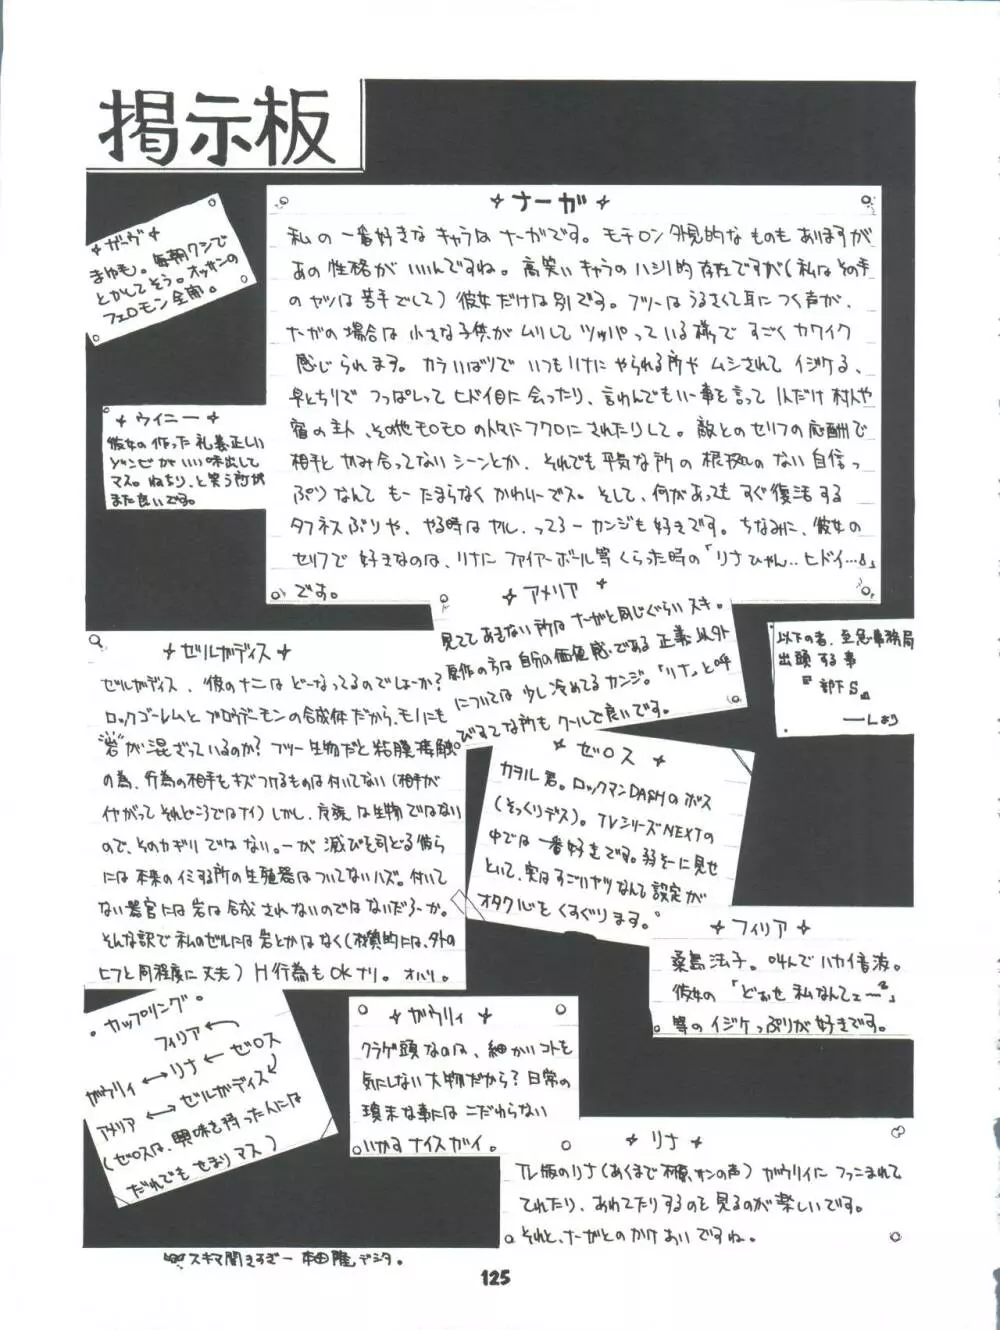 掲示板
✦ ガーヴ ✦
まゆも。毎朝クシで
とかしてそう。オッサンの
フェロモン全開。
✦ ナーガ ✦
私の一番好きなキャラはナーガです。モチロン外見的なものもありますが
あの性格がいいんですね。高笑いキャラのハシリ的存在ですが(私はその手
のヤツは苦手でして)彼女だけは別です。フツーはうるさくて耳につく声が、
ナーガの場合は小さな子供がムリしてツッパっている様ですごくカワイク
感じられます。カラいばりでいつもリナにやられる所やムシされてイジケる、
早とちりでつっぱしってヒドイ目に会ったり、言わんでもいー事を言って1人だけ村人や
宿の主人、その他モロモロの人々にフクロにされたりして。敵とのセリフの応酬で
相手とかみ合ってないシーンとか、それでも平気な所の根拠のない自信っ
ぷりなんてもーたまらなくかわいーでス。そして、何があってもすぐ復活する
タフネスぶりや、やる時はヤル、ってろーカンジも好きです。ちなみに、彼女の
セリフで好きなのは、リナにファイアーボール等くらった時の「リナひゃん‥ヒドイ…」
です。
✦ ウィニー ✦
彼女の作った礼義正しい
ゾンビがいい味出して
マス。ねちり、と笑う所が
また良いです。
✦ アメリア ✦
見ててあきない所はナーガと同じぐらいスキ。
原作の方は自分の価値感である正義以外
については少し冷めてるカンジ。「リナ」と呼
びすてな所もクールで良いです。
以下の者、至急事務局
出頭する事
『部下S』
──Lより
✦ ゼルガディス ✦
ゼルガディス、彼のナニはどーなってるのでしょーか?
ロックゴーレムとブロウデーモンの合成体だから、モノにも
岩が混ざっているのか?フツー生物だと粘膜接触
の為、行為の相手をキズつけるものは付いてない(相手が
イヤがってそれどころではナイ)しかし、魔族は生物ではない
ので、そのカギリではない。─が滅びを司どる彼ら
には本来のイミする所の生殖器はついてないハズ。付いて
ない器官には岩は合成されないのではないだろーか。
そんな訳で私のゼルには岩とかはなく(材質的には、外の
ヒフと同程度に丈夫)H行為もOKナリ。オハリ。
✦ ゼロス ✦
カヲル君。ロックマンDASHのボス
(そっくりデス)。TVシリーズNEXTの
中では一番好きです。弱そーに見せ
といて、実はすごいヤツなんて設定が
オタク心をくすぐります。
✦ フィリア ✦
桑島法子。叫んでハカイ音波。
彼女の「どぉせ私なんてェー」
等のイジケっぷりが好きです。
・カップリング。
フィリア
ガウリィ ←→ リナ ← ゼロス
アメリア ←→ ゼルガディス
(ゼロスは、興味を持った人には
だれでもせまりマス)
✦ ガウリィ ✦
クラゲ頭なのは、細かいコトを
気にしない大物だから?日常の
瑣末な事にはこだわらない
いかすナイスガイ。
✦ リナ ✦
TV版のリナ(あくまで林原サンの声)ガウリィにつっこまれて
てれたり、あわてたりするのを見るのが楽しいです。
それと、ナーガとのかけあいですね。
スキマ開きすぎー 本田隆デシタ。
125